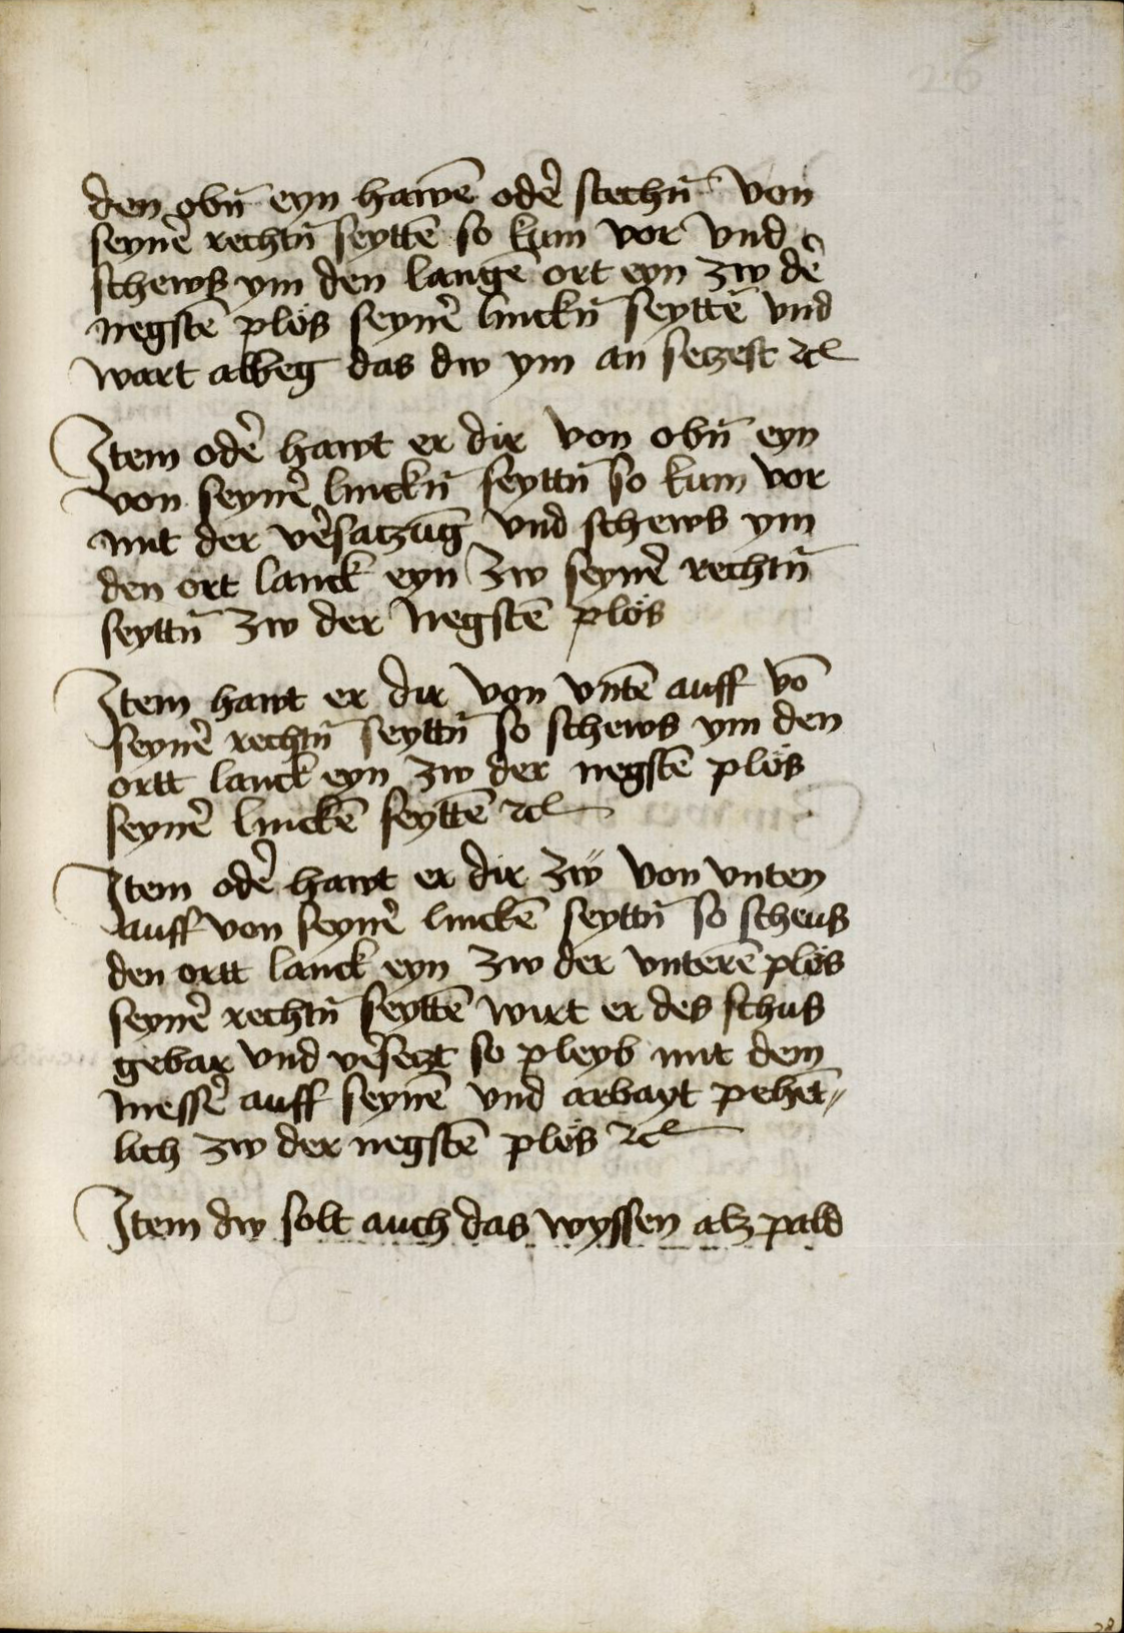 26
den obn̄ eyn hawē odẻ stechn̄ von
seynẻ rechtn̄ seyttē so kum vor vnd
schews ym den langē ort eyn zw dẻ
negstē plös seynẻ linckn̄ seyttē vnd
wart albeg das dw ym an setzest ꝛc
Item odẻ hawt er dir von obn̄ eyn
von seynẻ linckn̄ seyttn̄ so kum vor
mit der vẻsatzūg vnd schews ym
den ort lanck eyn zw seynẻ rechtn̄
seyttn̄ zw der negstē plös
Item hawt er dir von vntē auff vō
seynẻ rechtn̄ seyttn̄ so schews ym den
ortt lanck eyn zw der negstē plös
seynẻ linckē seyttē ꝛc
Item odẻ hawt er dir zẅ von vnten
auff von seynẻ linckē seyttn̄ so scheus
den ortt lanck eyn zw der vnterē plös
seynẻ rechtn̄ seyttē wirt er des schus
gebar vnd vẻsetzt so pleyb mit dem
messẻ auff seynē vnd arbayt pehēt〃
lich zw der negstē plös ꝛc
Item dw solt auch das wyssen alz pald
28